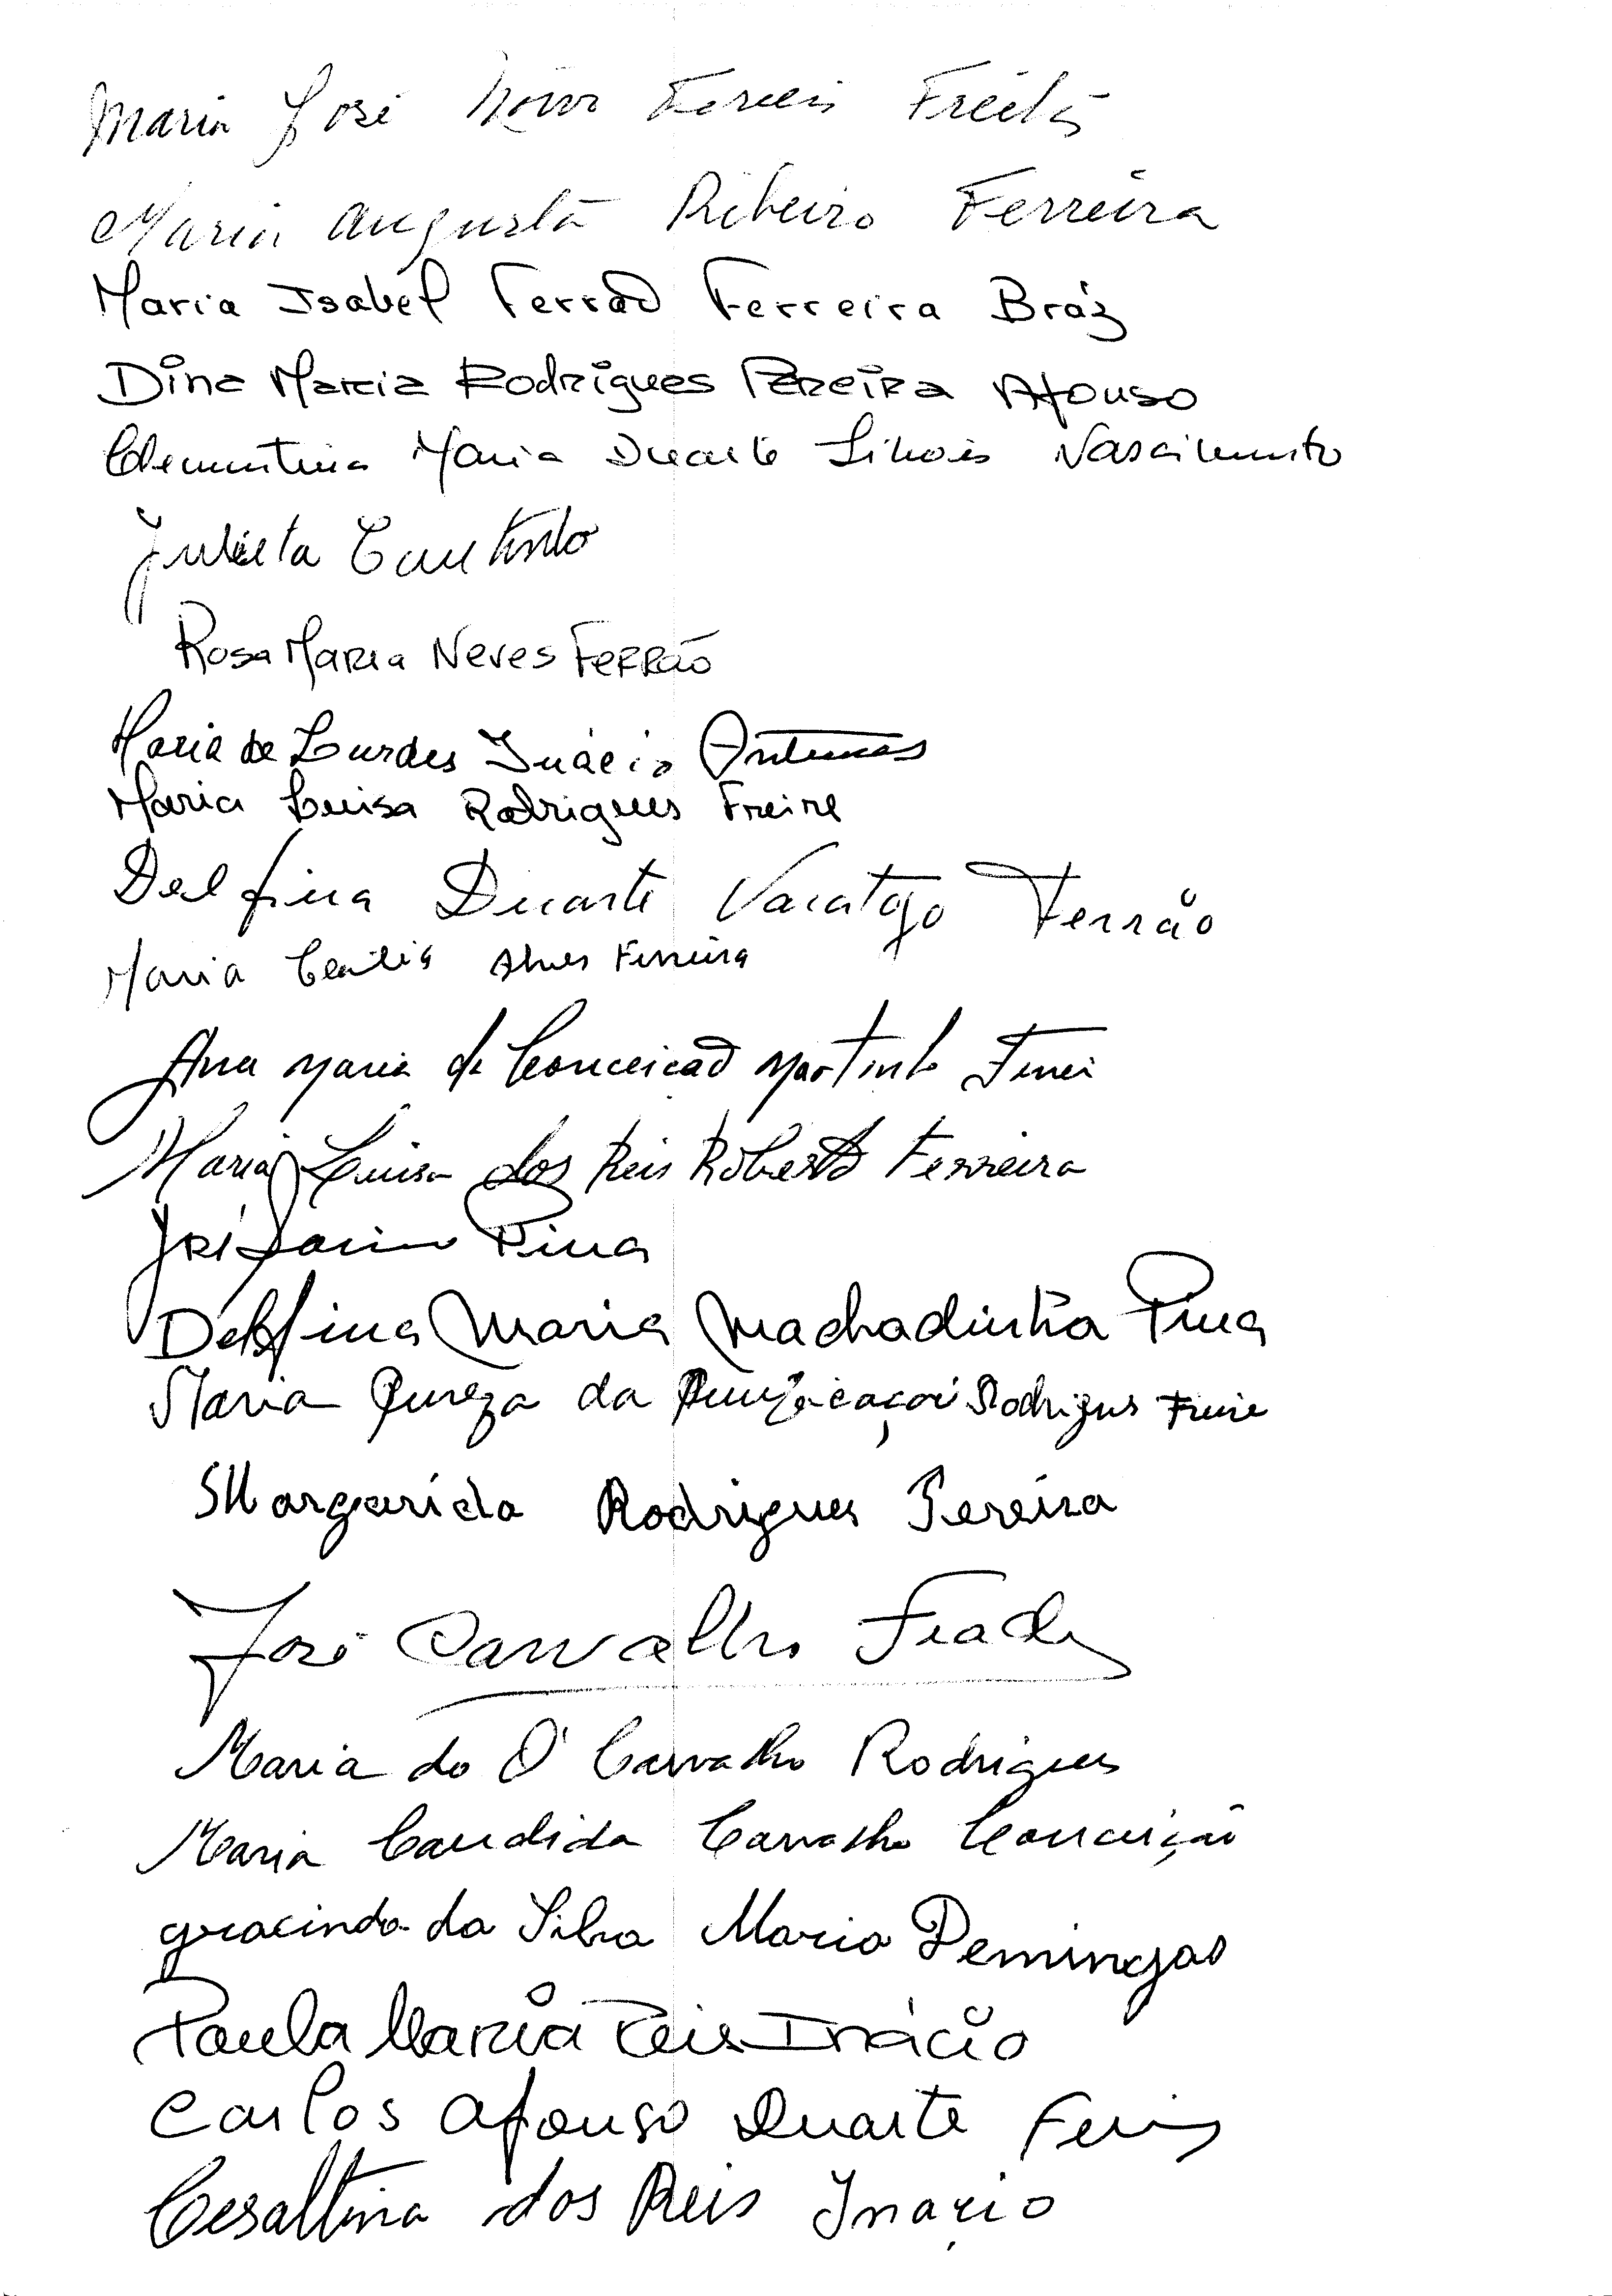 Maria José Novo Freitas
Maria Augusta Ribeiro Ferreira
Maria Isabel Ferrão Ferreira Bráz
Dina Marcia Rodrigues Pereira Afonso
Clementina Maria Duarte Simões Nascimento
Julieta Coutinho
Rosa Maria Neves Ferrão
Maria de Lurdes Inácio Antunes
Maria Luisa Rodrigues Freire
Delfina Duarte Varatojo Ferrão
Maria Cecilia Alves Ferreira
Ana Maria da Conceicão Martinho
Maria Luisa dos Reis Roberto Ferreira
José Pina
Delfina Maria Machadinha Pina
Maria Pureza da Purificação Rodrigues Freire
Margarida Rodrigues Pereira
José Carvalho Frade
Maria do Ó Carvalho Rodrigues
Maria Candida Carvalho Conceição
gracinda da Silva Maria Demingas
Paula Maria Reis Inácio
Carlos Afonso Duarte
Cesaltina dos Reis Inaçio